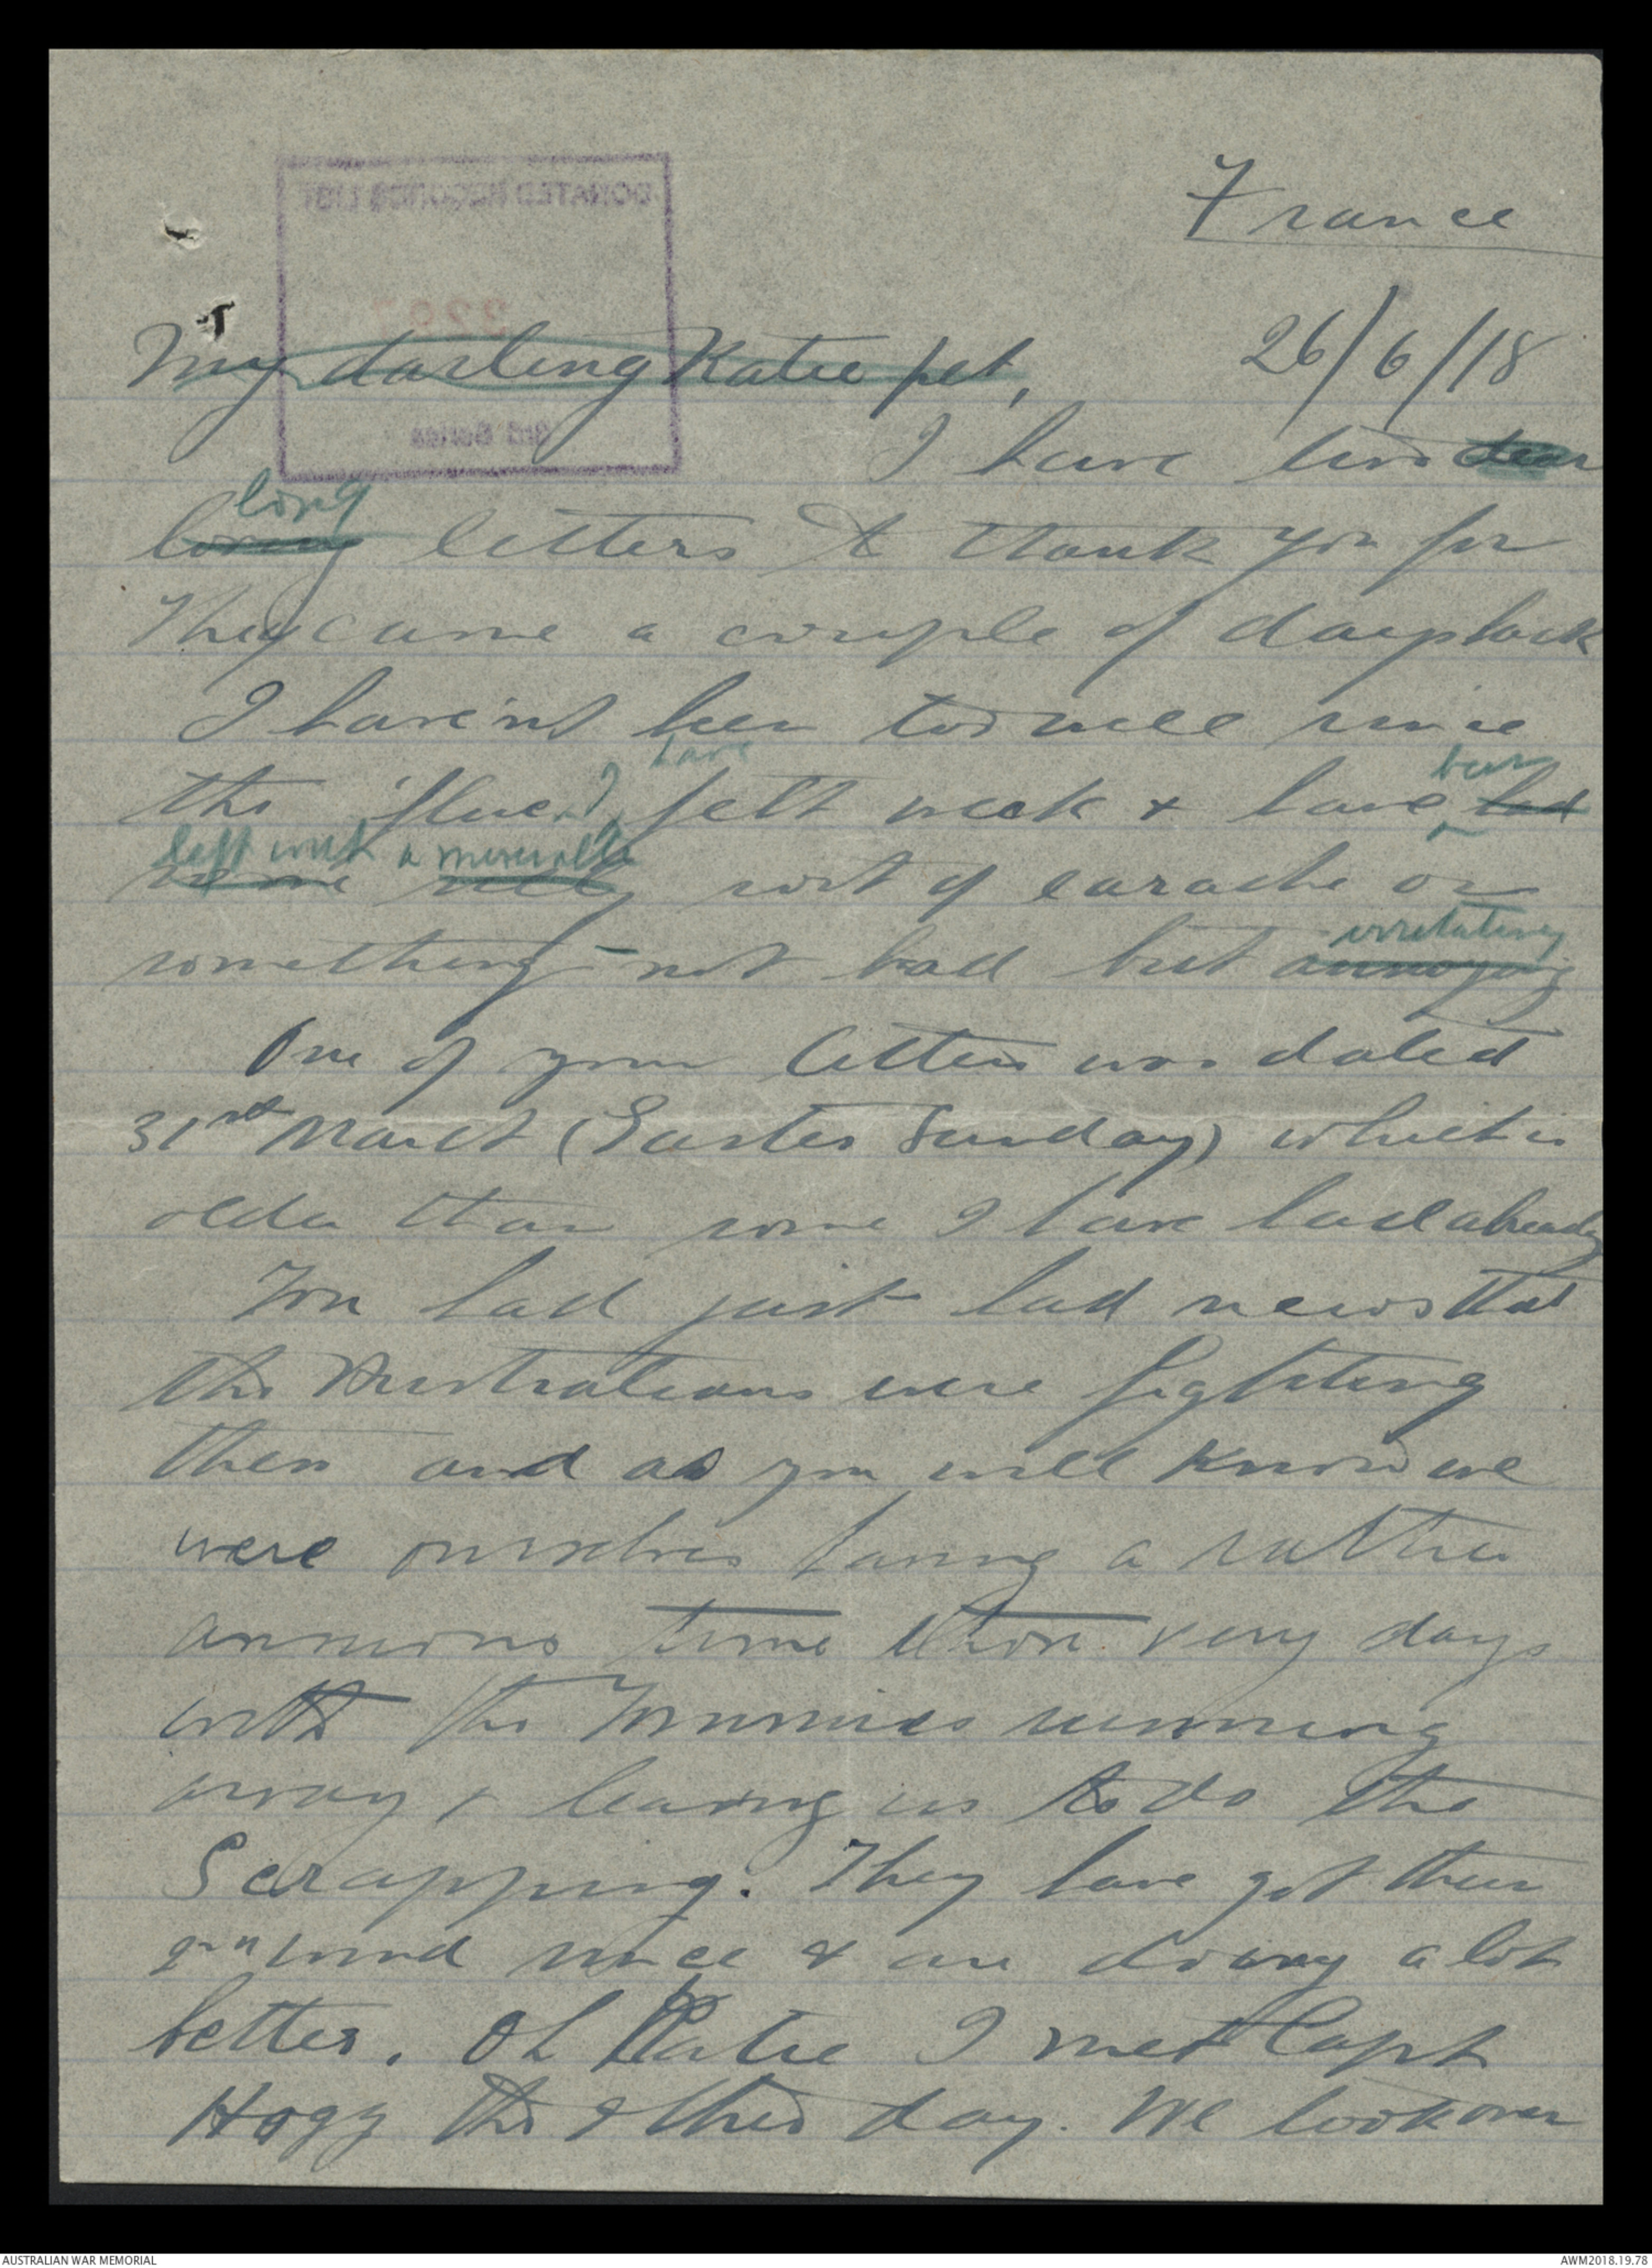 France
26/6/18
My darling Katie pet,
I have two dear
long
loving letters to thank you for
They came a couple of days back
I have'nt been too well since
have been
the 'flue I felt weak & have had
left with a miserable
some silly sort of earache or
irritating
something - not bad but annoying
One of your letters was dated
31st March (Easter Sunday) which is
older than some I have had already
You had just had news that
the Australians were fighting
then and as you will know we
were ourselves having a rather
anxious time those very days
with the Tommies running
away & leaving us to do the
Scrapping. They have got their
2nd wind since & are doing a lot
better. Oh Katie I met Capt
Hogg the other day. We took over
DONATED RECORDS LIST
3rd Series
AUSTRALIAN WAR MEMORIAL
AWM2018.19.78